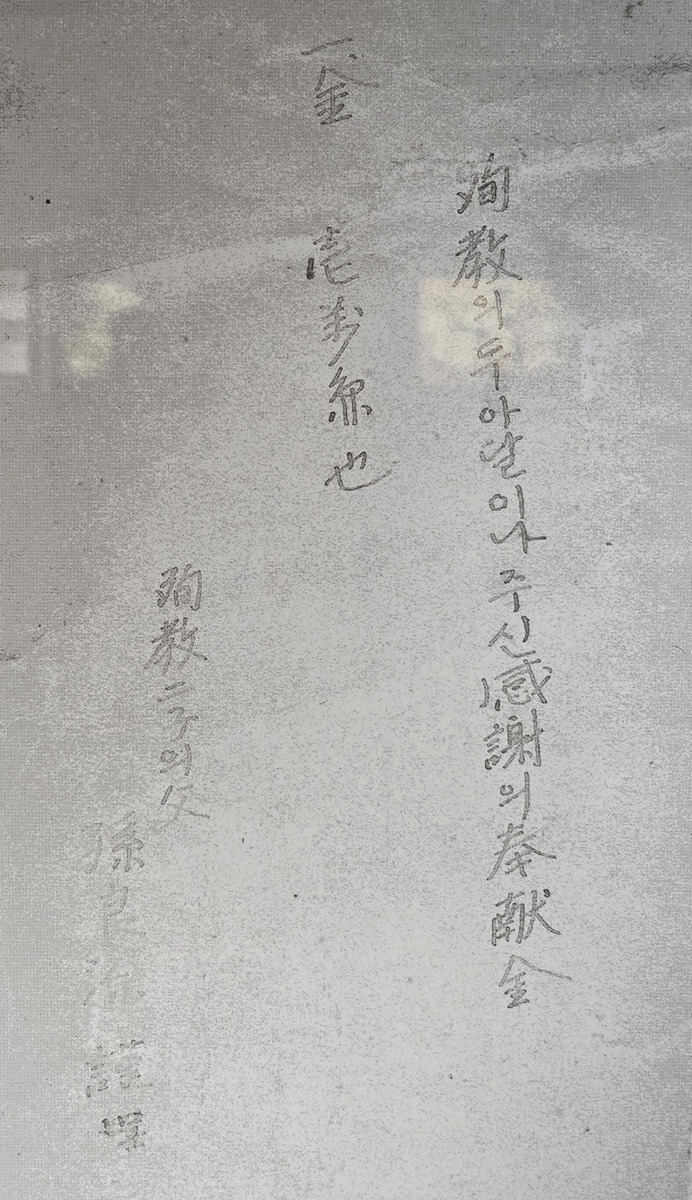 殉教의 두 아달이나 주신 感謝의 奉献金
一金 壱萬 也
殉教二子의 父
孫良源 謹呈